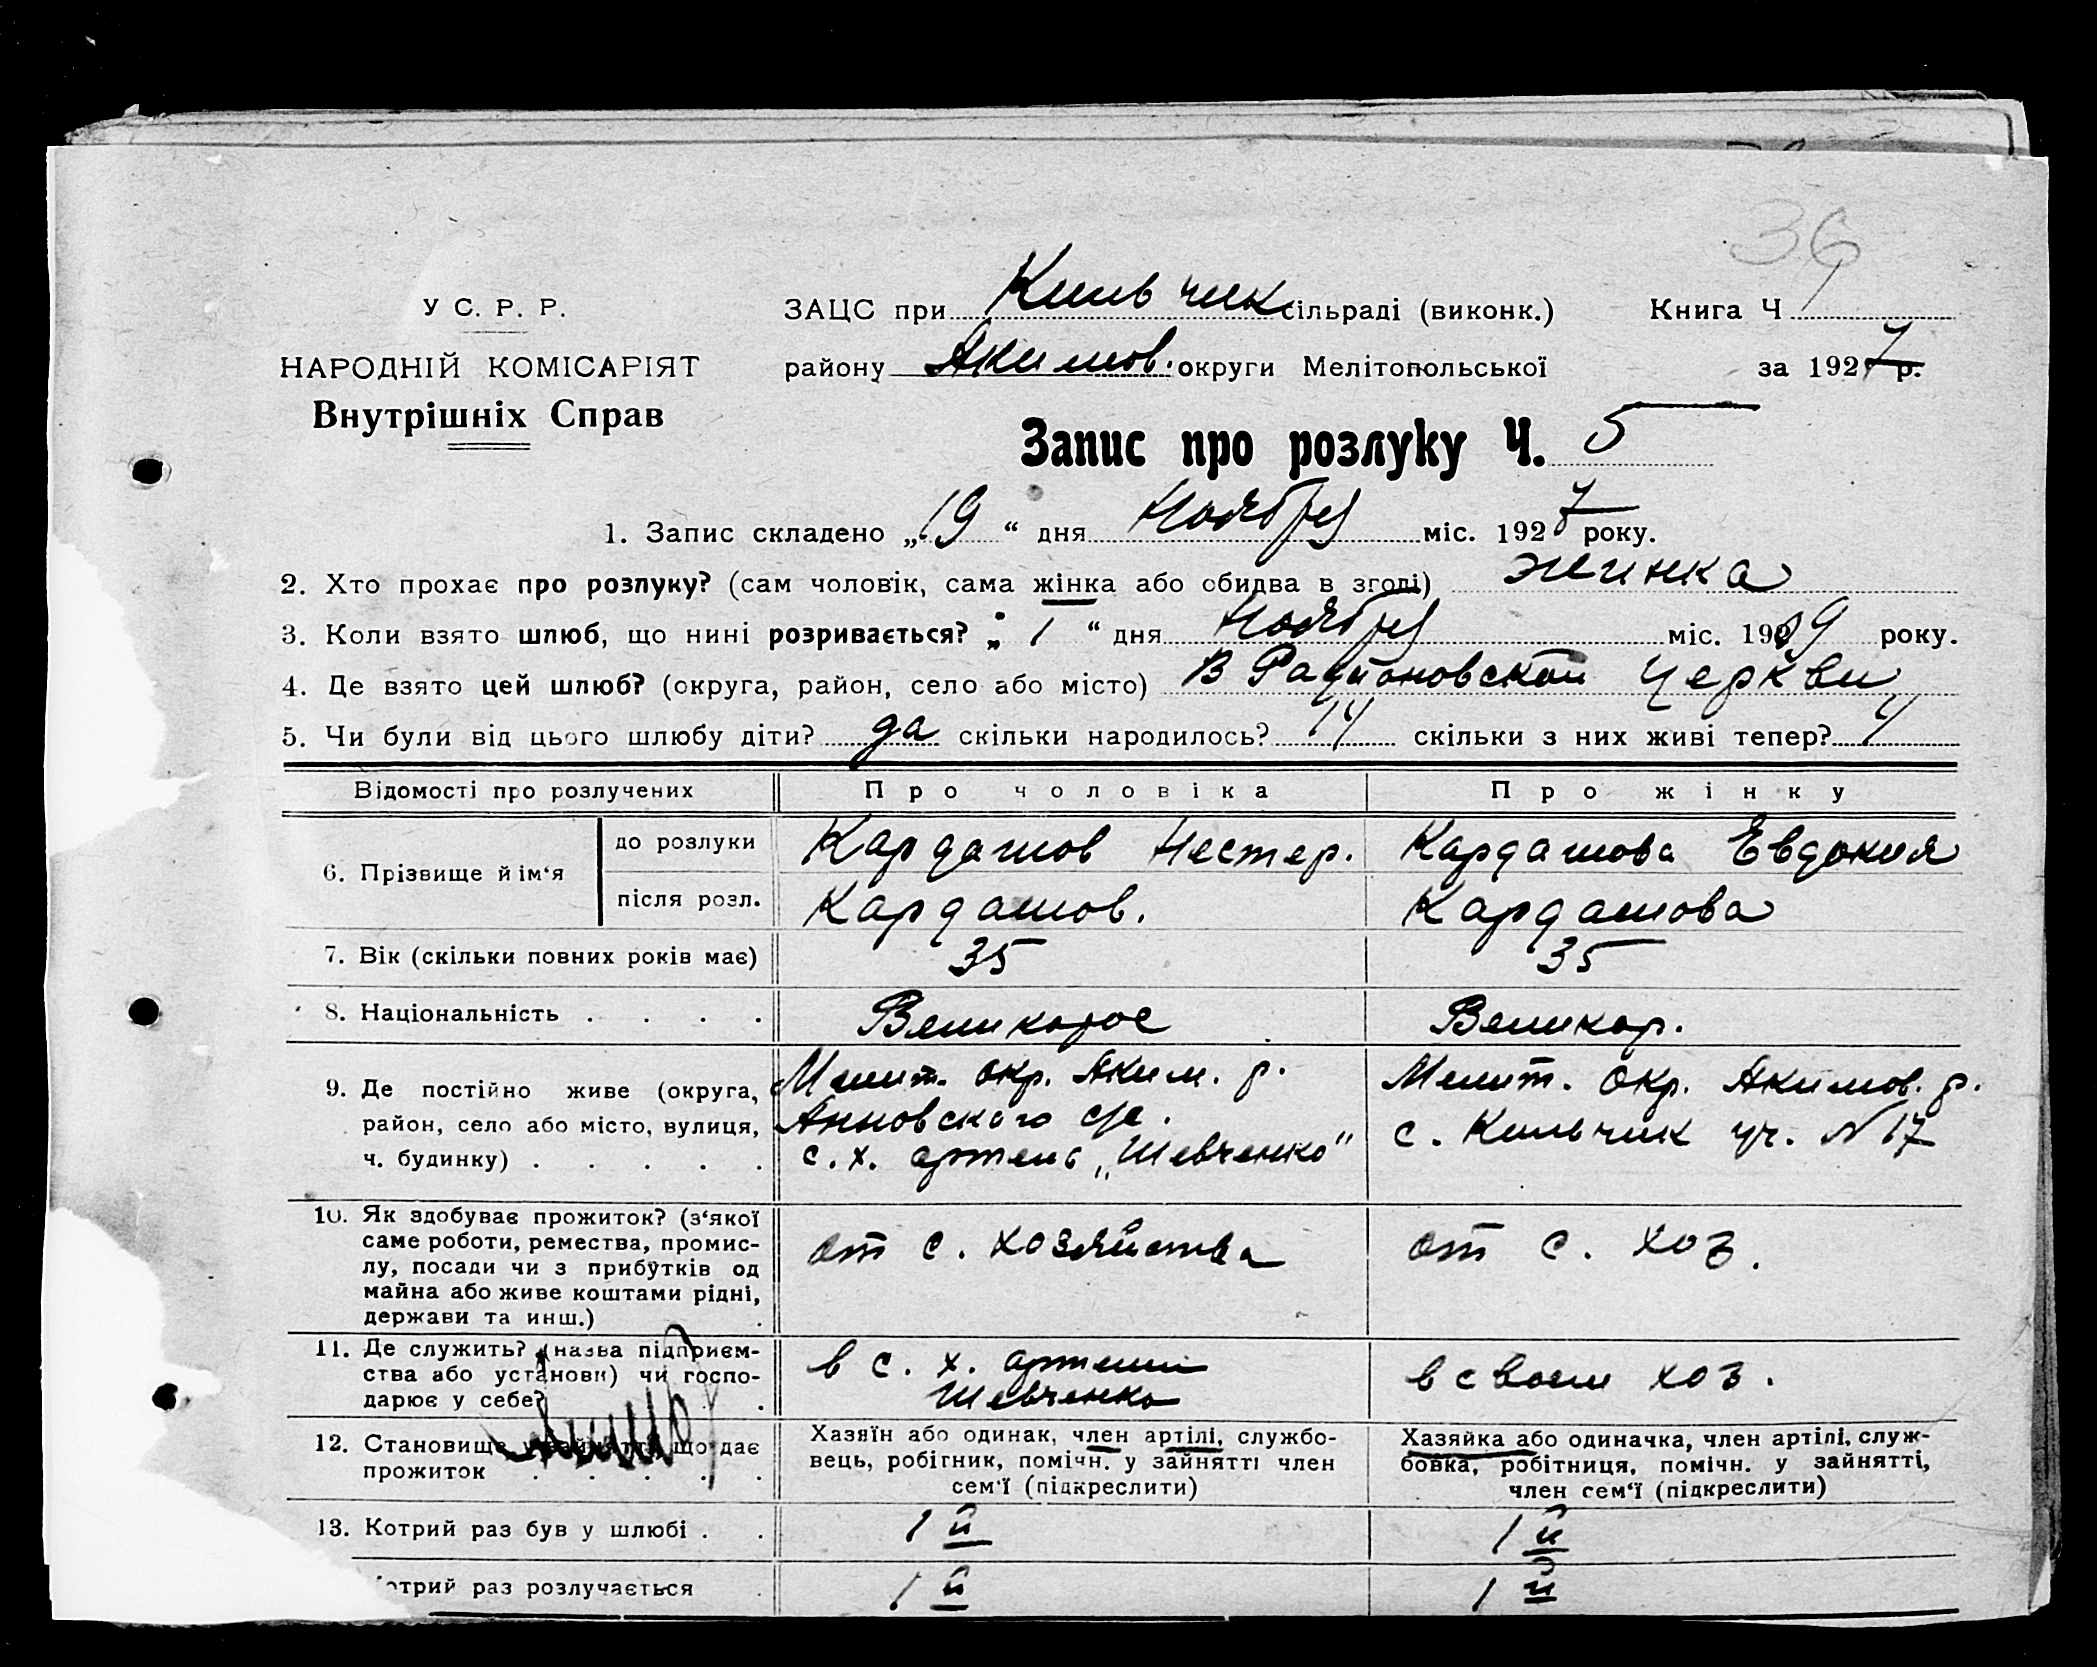 36
У С. Р. Р.
НАРОДНІЙ КОМІСАРІЯТ
Внутрішніх Справ
ЗАЦС при Кильчик сільраді (виконк.) Книга Ч 1
району Акимов. округи Мелітопольської за 1927 р.
Запис про розлуку Ч. 5
1. Запис складено „19“ дня Ноября міс. 1927 року.
2. Хто прохає про розлуку? (сам чоловік, сама жінка або обидва в згоді) жинка
3. Коли взято шлюб, що нині розривається? „1“ дня Ноября міс. 1909 року.
4. Де взято цей шлюб? (округа, район, село або місто) В Церкви
5. Чи були від цього шлюбу діти? да скільки народилось? 14 скільки з них живі тепер? 4
Відомості про розлучених Про чоловіка Про жінку
6. Прізвище й ім‘я
до розлуки Кардашов Нестер. Кардашова Евдокия
після розл. Кардашов. Кардашова
7. Вік (скільки повних років має) 35 35
8. Національність . . . . Великорос Великор.
9. Де постійно живе (округа, район, село або місто, вулиця, ч. будинку) . . . . .
Мелит. окр. Аким. р.
Анновского с/с.
с. х. артель „Шевченко"
Мелит. окр. Акимов. р.
с. Кильчик уч. N 17
10. Як здобуває прожиток? (з‘якої
саме роботи, ремества, промис-
лу, посади чи з прибутків од
майна або живе коштами рідні,
держави та инш.)
от с. хозяйства
от с. хоз.
11. Де служить? (назва підприєм-
ства або установи) чи госпо-
дарює у себе?
в с. х. артели
Шевченко
в своем хоз.
12. Становище у зайнятті, що дає
прожиток . . . . .
Хазяїн або одинак, член артілі, службо-
вець, робітник, помічн. у зайнятті член
сем‘ї (підкреслити)
Хазяйка або одиначка, член артілі, служ-
бовка, робітниця, помічн. у зайнятті,
член сем‘ї (підкреслити)
13. Котрий раз був у шлюбі . . 1й 1й
Котрий раз розлучається 1й 1й